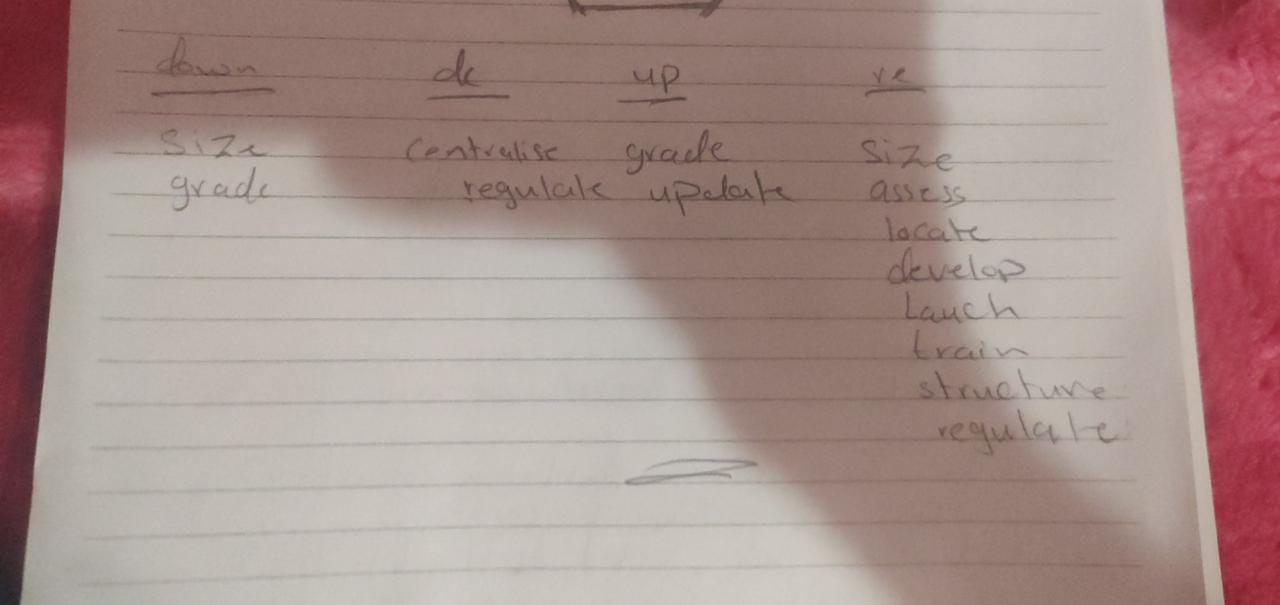 down de up re
size centralise grade size
grade regulate update assess
locate
develop
Lauch
train
structure
regulate